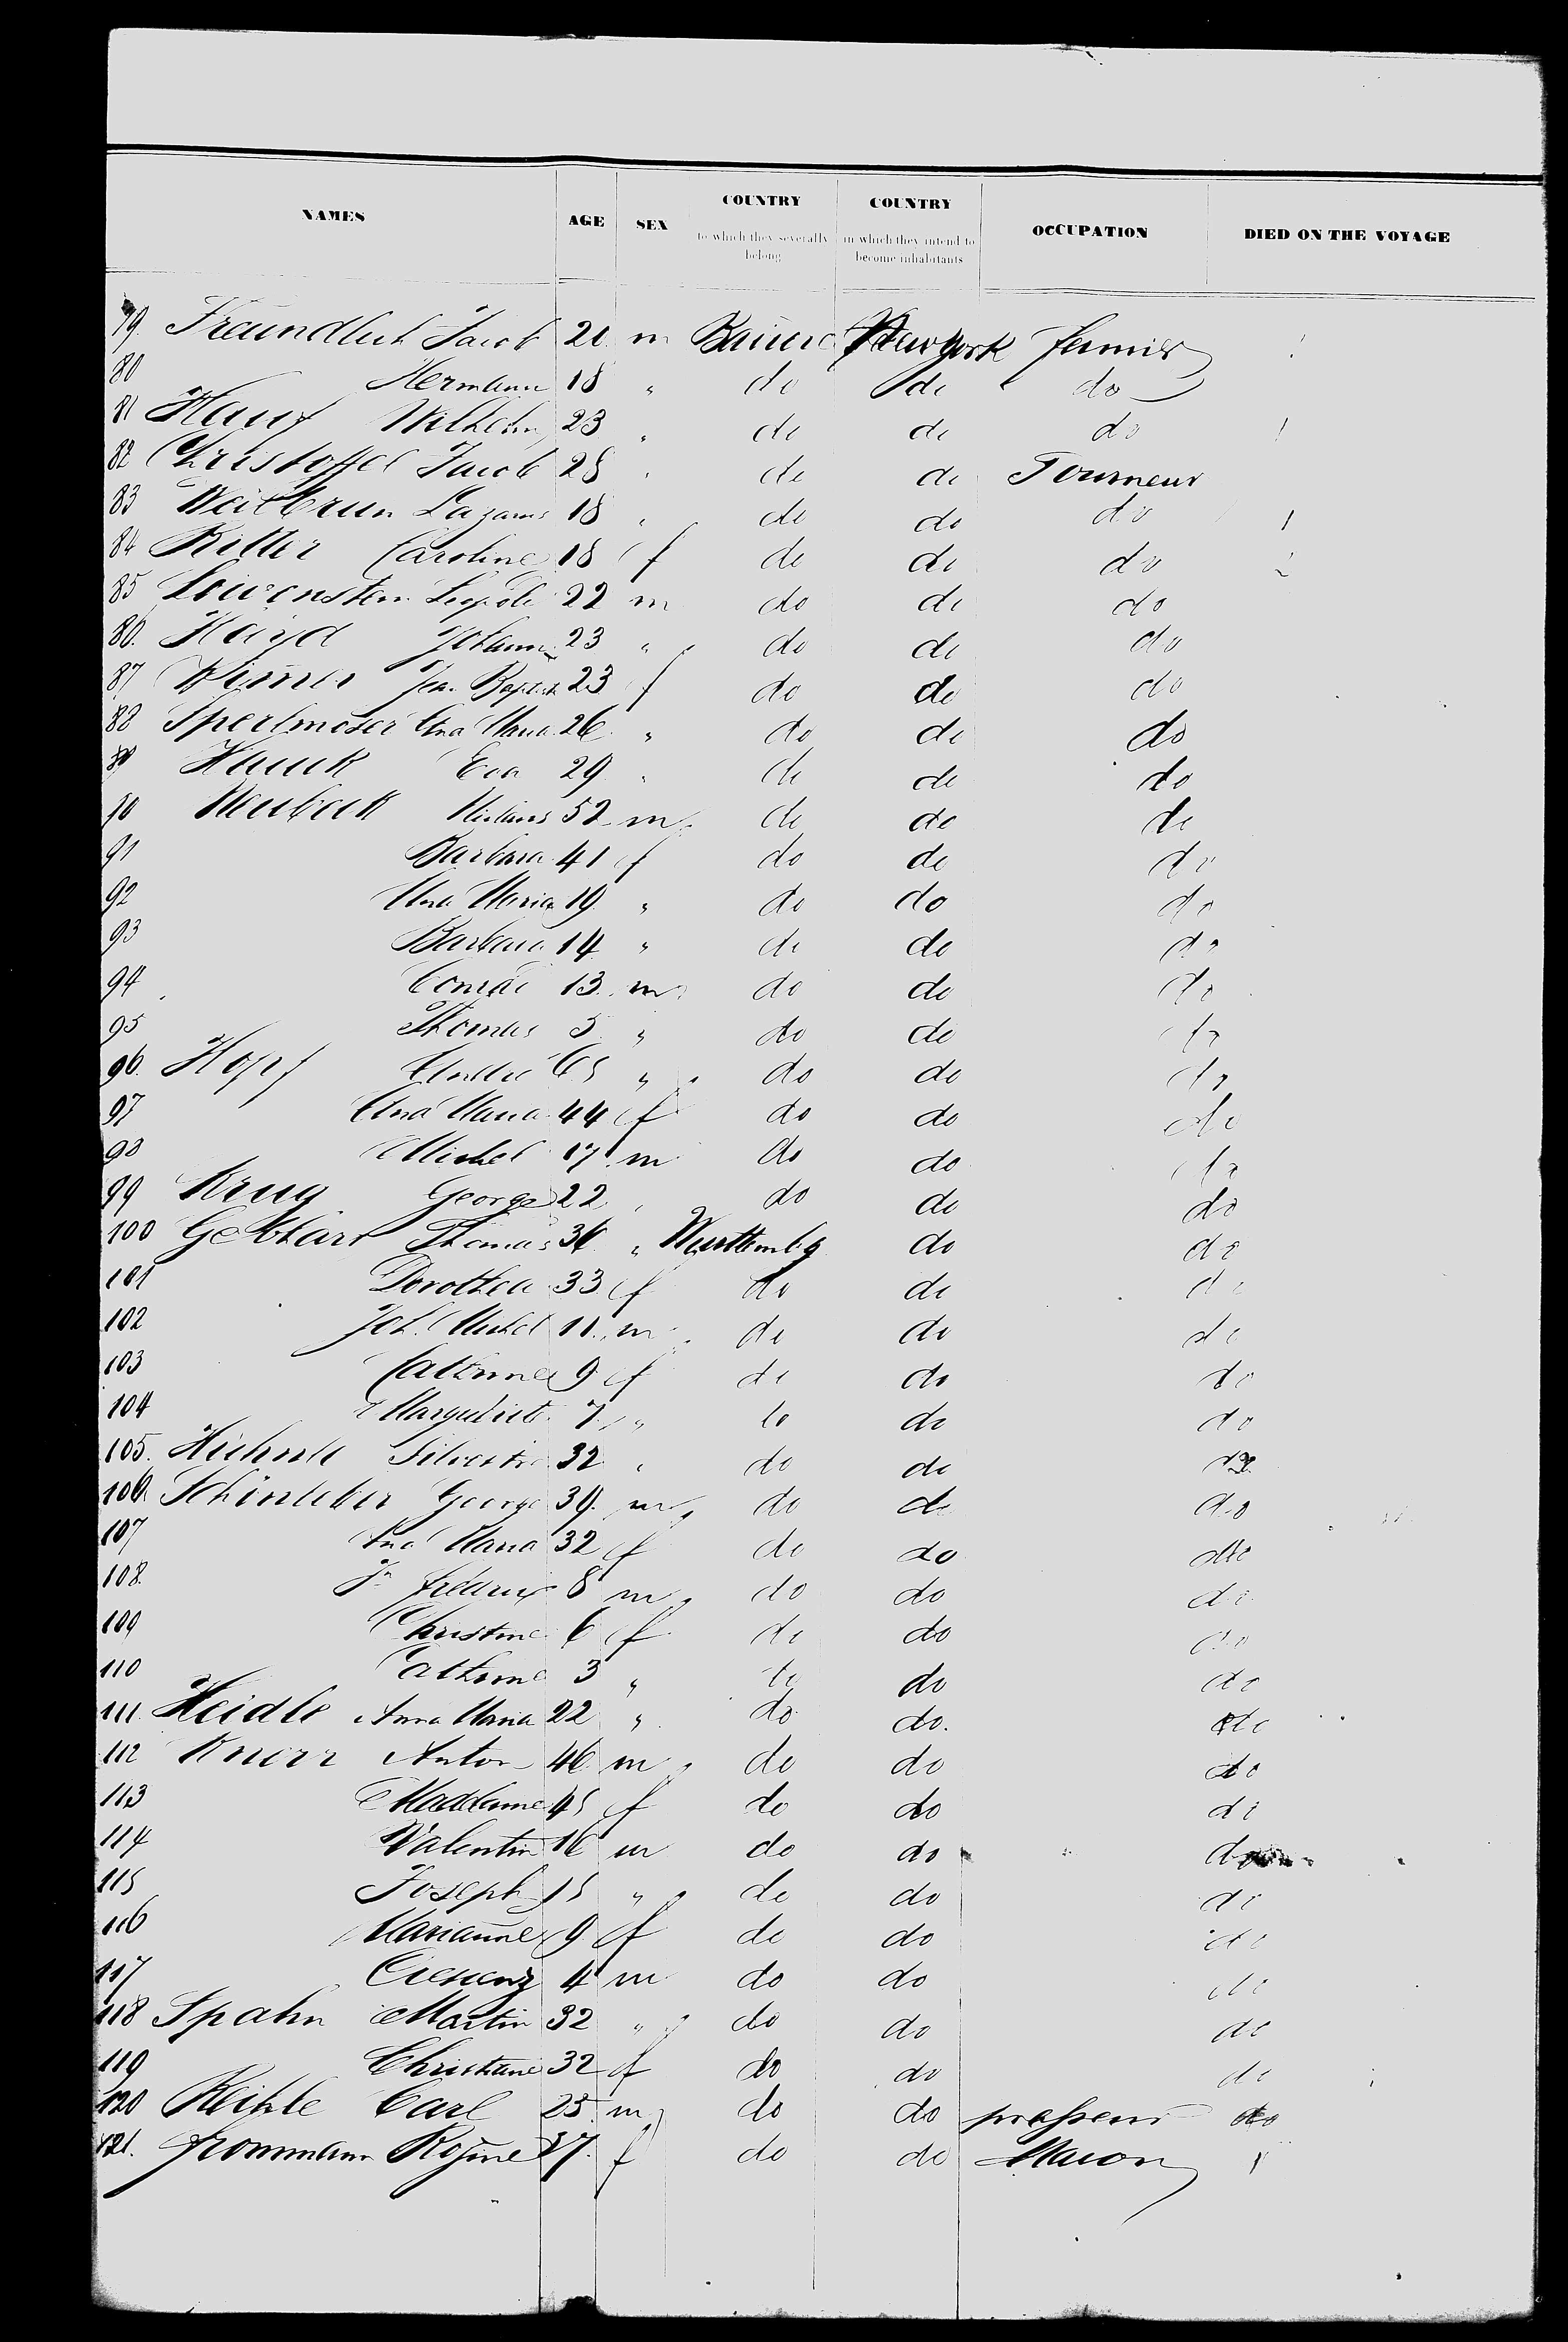 NAMES AGE SEX COUNTRY to which they severally belong COUNTRY in which they intend to become inhabitants OCCUPATION DIED ON THE VOYAGE
79. Freundlich Jacob 21 m New York
80 Hermann 18 " do do do
81 Hauf Wilhelm 23 " do do do
82 Christoffel Jacob 28 " do do Tourneur
83 Weilbrun Lazarus 18 " do do do
84 Ritter Caroline 18 f do do do
85 Lowenstein Leopold 22 m do do do
86. Hayd Johann 23 " do do do
87 Jean Baptist 23 f do do do
88 Sperlmoser Ana Maria 26 " do do do
89 Hauck Eva 29 " do do do
90 Neubeck 52 m do do do
91 Barbara 41 f do do do
92 Ana Maria 19 " do do do
93 Barbara 14 " do do do
94 Conrad 13 m do do do
95 Thomas 5 " do do do
96. Hopf André 65 " do do do
97 Ana Maria 44 f do do do
98 Michel 17 m do do do
99 Krug George 22 " do do do
100 Gebhart Thomas 36 " Wurttembg do do
101 Dorothea 33 f do do do
102 Joh. Michel 11 m do do do
103 Catherine 9 f do do do
104 7 " do do do
105. Silvestre 32 " do do do
106 Schönleber George 39 m do do do
107 Ana Maria 32 f do do do
108. Jn frederic 8 m do do do
109 Christine 6 f do do do
110 Catherine 3 " do do do
111. Heidle Anna Maria 22 " do do. do
112 Knorr Anton 46 m do do do
113 Maddame 45 f do do do
114 Valentin 16 m do do do
115 Joseph 15 " do do do
116 Marianne 9 f do do do
117 Crescenz 4 m do do do
118 Spahn Martin 32 " do do do
119 Christiane 32 f do do do
120 Keihle Carl 25 m do do professeur do
121. frommann Rosine 27. f do do Macon